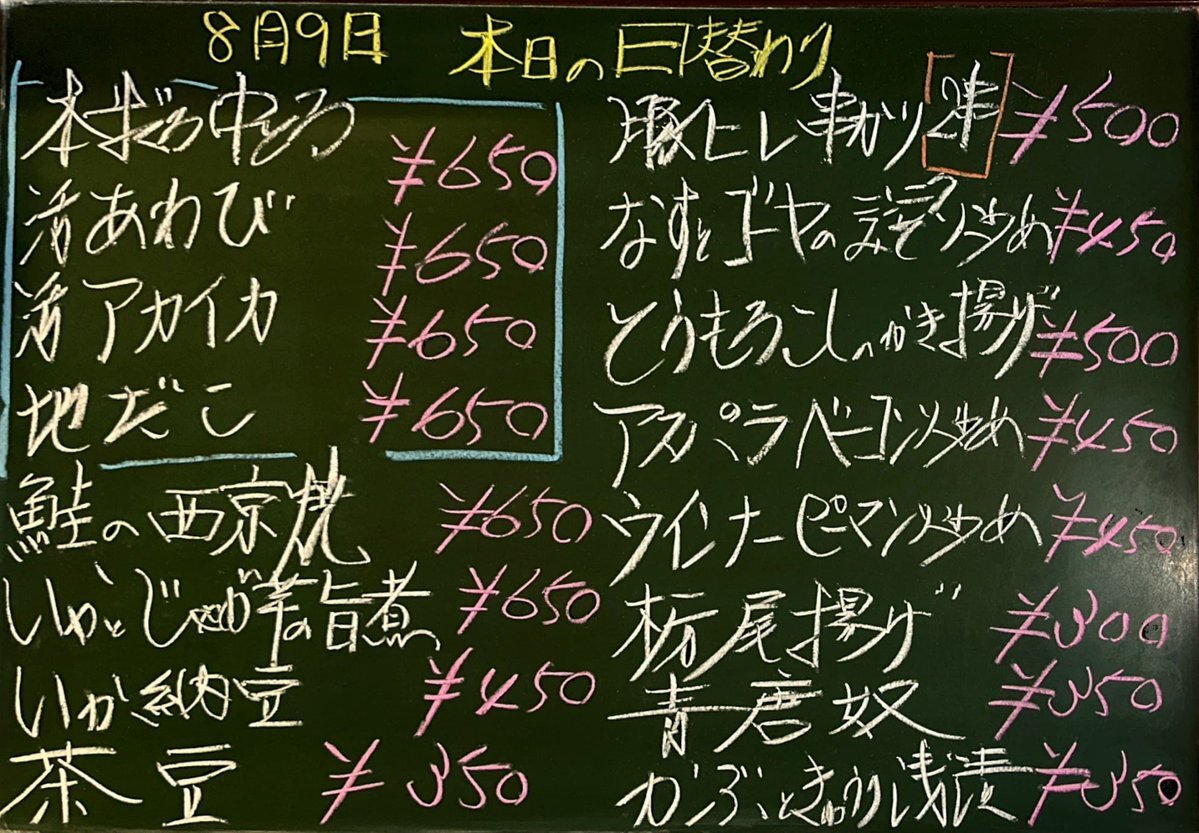 8月9日 本日の日替わり
本まぐろ中とろ ¥650
活あわび ¥650
活アカイカ ¥650
地だこ ¥650
鮭の西京焼 ¥650
いかとじゃが芋の旨煮 ¥650
いか納豆 ¥450
茶豆 ¥350
豚ヒレ串かつ 2串 ¥500
なすとゴーヤのみそ炒め ¥450
とうもろこしのかき揚げ ¥500
アスパラベーコン炒め ¥450
ウインナーピーマン炒め ¥450
栃尾揚げ ¥300
青唐奴 ¥350
かぶときゅうり浅漬 ¥350